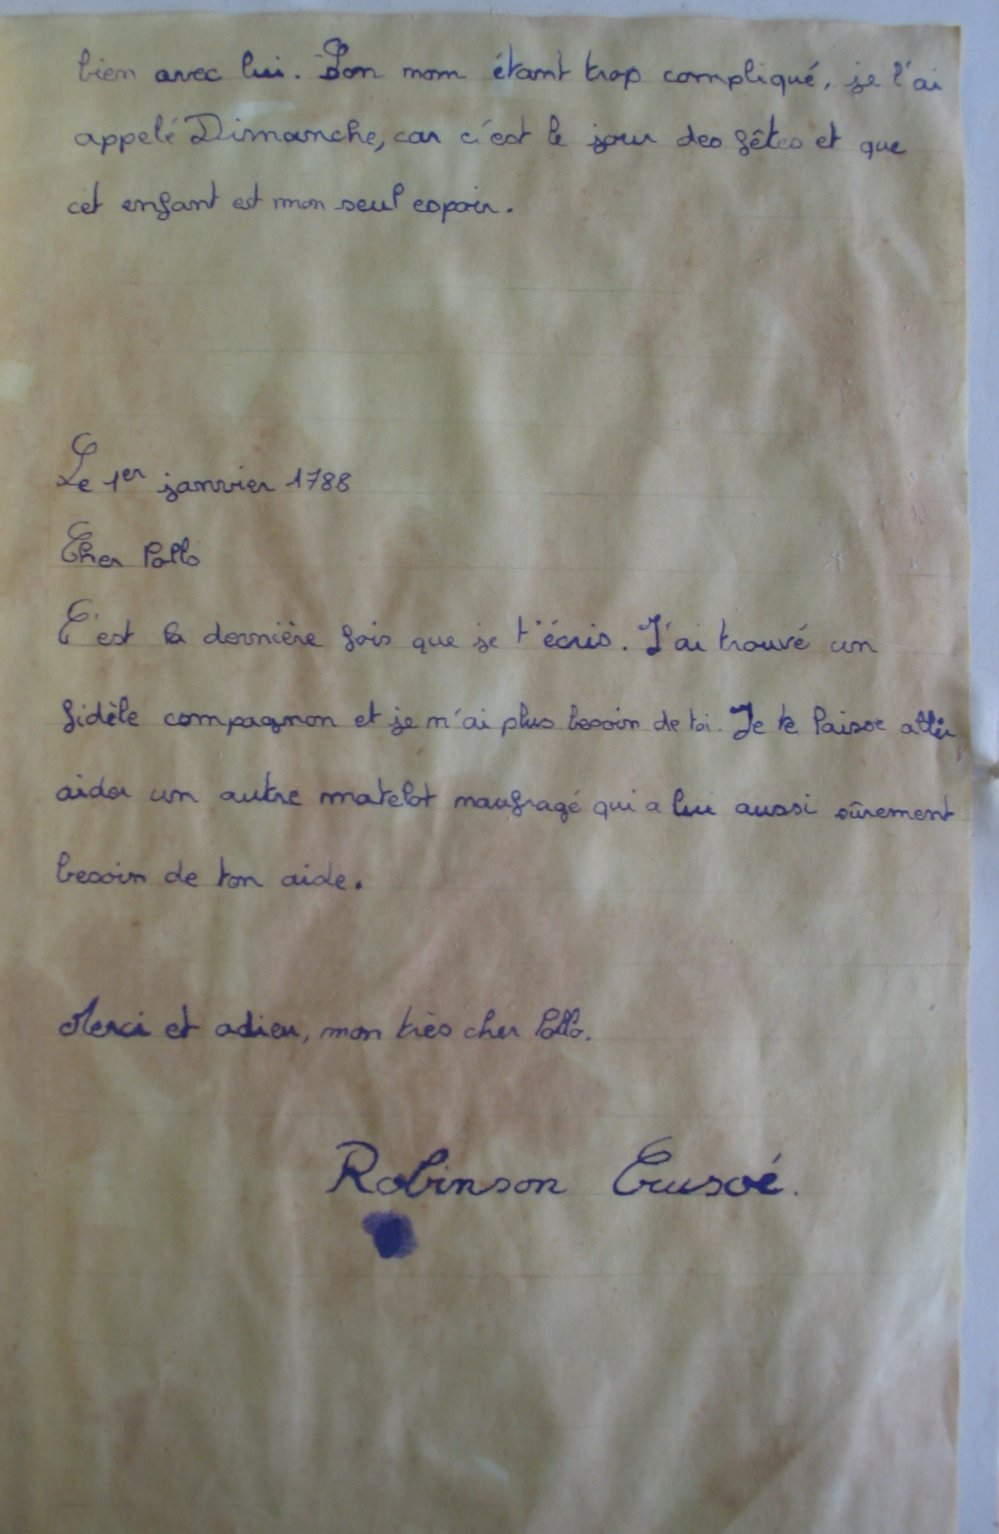 bien avec lui. Son nom étant trop compliqué, je l'ai
appelé Dimanche, car c'est le jour des fêtes et que
cet enfant est mon seul espoir.
Le 1er janvier 1788
Cher Pollo
C'est la dernière fois que je t'écris. J'ai trouvé un
fidèle compagnon et je n'ai plus besoin de toi. Je te laisse aller
aider un autre matelot naufragé qui a lui aussi sûrement
besoin de ton aide.
Merci et adieu, mon très cher Pollo.
Robinson Crusoé.